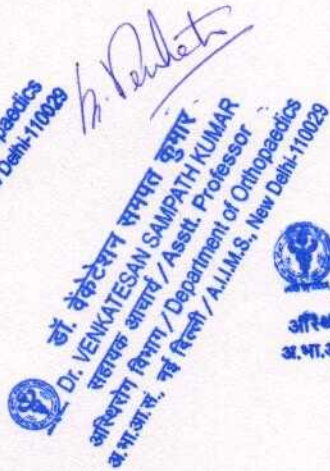 paedics
Delhi-110029
डॉ. वेंकटेशन सम्पत कुमार
Dr. VENKATESAN SAMPATH KUMAR
सहायक आचार्य / Asstt. Professor
अस्थिरोग विभाग / Department of Orthopaedics
अ.भा.आ.सं., नई दिल्ली / A.I.I.M.S., New Delhi-110029